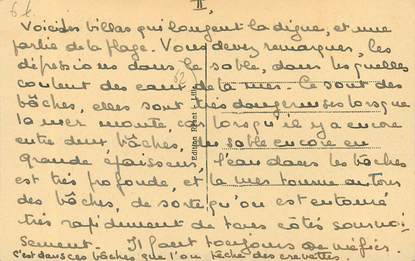 II.
6 f.
Voici des villas qui longent la digue, et une
partie de la plage. Vous devez remarquer, les
dépressions dans le sable, dans lesquelles
coulent des eaux de la mer. Ce sont des
bâches, elles sont très dangereuses lorsque
la mer monte, car lorsqu'il y a encore
entre deux bâches, du sable encore en
grande épaisseur, l'eau dans les bâches
est très profonde, et la mer tourne autour
des bâches, de sorte qu'on est entouré
très rapidement de tous côtés sournoi-
sement. Il faut toujours se méfier.
C'est dans ces bâches que l'on pêche des crevettes.
52
Lille